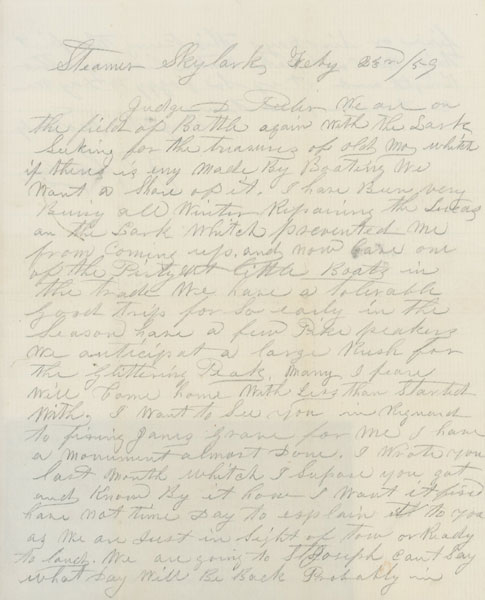 Steamer Skylark, Feby 23rd/59
Judge We are on
the field of Battle again with the Lark
Seeking for the treasures of old Mo, whitch
if theng is eny Made By Boating We
Want a Share of it. I have Bune very
Buiuy all Winter Repairing the Lucas
an the Lark whitch prevented Me
from Coming up. and now have one
of the Purtyest little Boats in
the trade We have a tolirable
good trips for So early in the
Season have a few Pike peakers
We anticipat a large Rush for
the glittering Peak. Many I feare
Will Come home With Less than Started
With. I Want to See you in Reguard
to fixing Janes Grave for Me I have
a Monument almost Done. I Wrote you
last Month whitch I Supose you got
and Know By it how I Want it fixed
have not time Day to explain it to you
as We are Just in Sight of tow or Ready
to land. We are going to St Joseph Cant Say
what Day Will Be Back Probably in